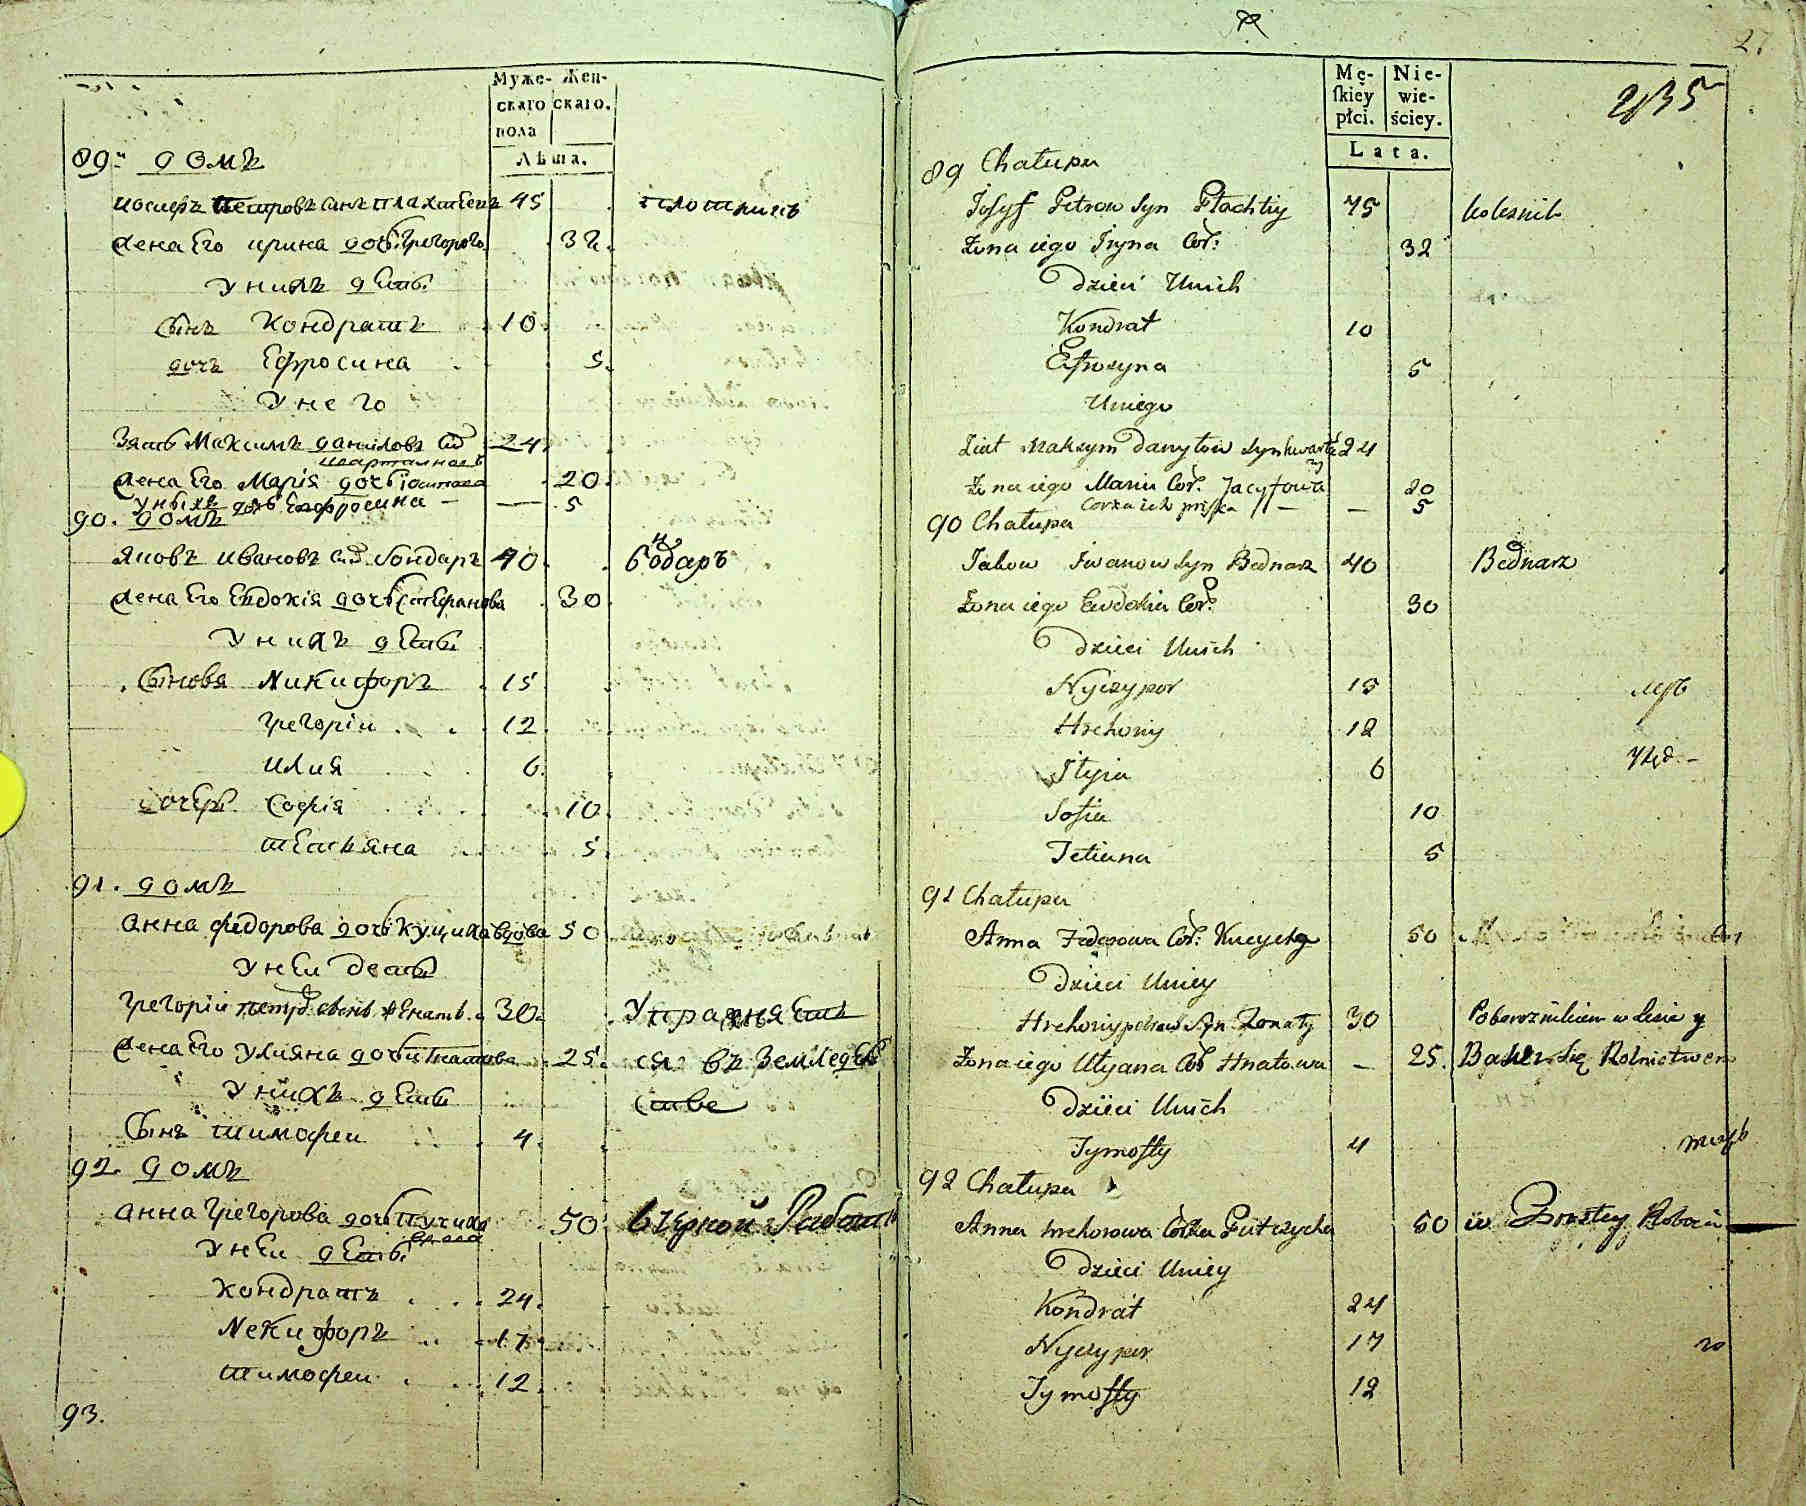 Муже-
скаго
пола
Жен-
скаго.
Лѣта.
89. домъ
иосифъ Петровъ сынъ 45
жена Его ирина дочь Грегорова 32.
У нихъ дети.
Сынъ Кондратъ 10
дочь Ефросина 5
У него
Зять Максимъ даниловъ 24
жена Его Марія дочь 20
У ныхъ дочь 5
90. домъ
яковъ ивановъ сын бондаръ 40 бондаръ
жена Его Евдокія дочь Стефанова 30
У нихъ дети.
Сыновя Никифоръ 15
Грегоріи 12
илия 6
дочери Софія 10
татьяна 5
91. домъ
анна федорова дочь Куциха вдова 50
У неи дети
Грегоріи петров сынъ женатъ 30 Упражняетъ
жена Его Улияна дочь Игнатова 25 ся въ Земледел
У нихъ дети стве
Сынъ тимофеи 4
92. домъ
анна Грегорова дочь Путчиха 50 въ черной Работе
вдова
У неи дети
Кондратъ 24
Никифоръ 17
тимофеи 12
93.
27
235
Mę-
ſkiey
płci.
Nie-
wie-
ściey.
Lata.
89 Chałupa
Józyf Petrow Syn Płachtiy 45 kolesnik
Żona iego Iryna Cór: 32
Dzieci Unich
Kondrat 10
Efrozyna 5
Uniego
Ziat Maksym Danyłow Syn 24
Żona iego Maria Cór. Jacyfowa 20
Corka ich 5
90 Chałupa
Jakow Iwanow Syn Bednarz 40 Bednarz
Żona iego Eudokia Cor. 30
Dzieci Unich
Nyczypor 15
Hrehoriy 12
Ilyia 6
Sofia 10
Tetiana 5
91 Chałupa
Anna Fedorowa Cor: Kucycha 50
Dzieci Uniey
Hrehoriy petrow Syn Żonaty 30 Pobereznikiem w Lesie y
Żona iego Ulyana Cór Hnatowa 25. Bawi Się Rolnictwem
Dzieci Unich
Tymofiy 4
92 Chałupa
Anna hrehorowa Córka Putczycha 50 w Prostey Roboci
Dzieci Uniey
Kondrat 24
Nyczypor 17
Tymofiy 12